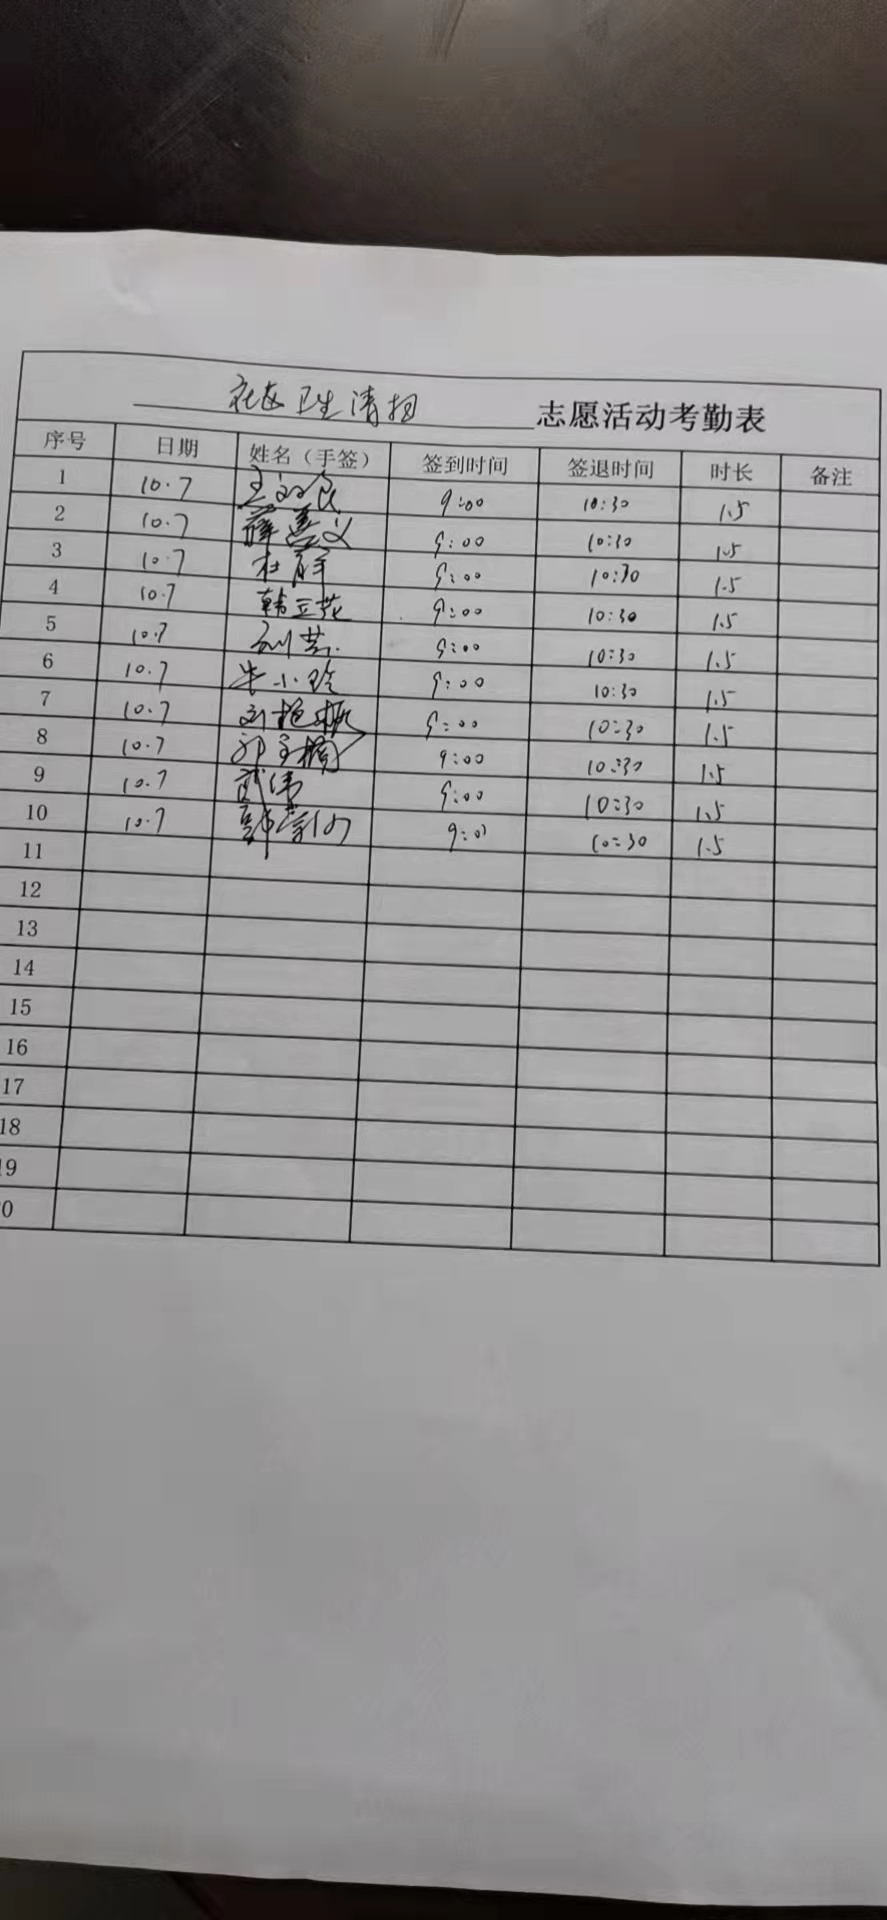 社区卫生清扫志愿活动考勤表
序号 日期 姓名（手签） 签到时间 签退时间 时长 备注
1 10.7 9:00 10:30 1.5
2 10.7 薛喜义 9:00 10:30 1.5
3 10.7 杜萍 9:00 10:30 1.5
4 10.7 韩立花 9:00 10:30 1.5
5 10.7 9:00 10:30 1.5
6 10.7 牛小玲 9:00 10:30 1.5
7 10.7 刘艳 9:00 10:30 1.5
8 10.7 9:00 10:30 1.5
9 10.7 武伟 9:00 10:30 1.5
10 10.7 9:00 10:30 1.5
11
12
13
14
15
16
17
18
19
0